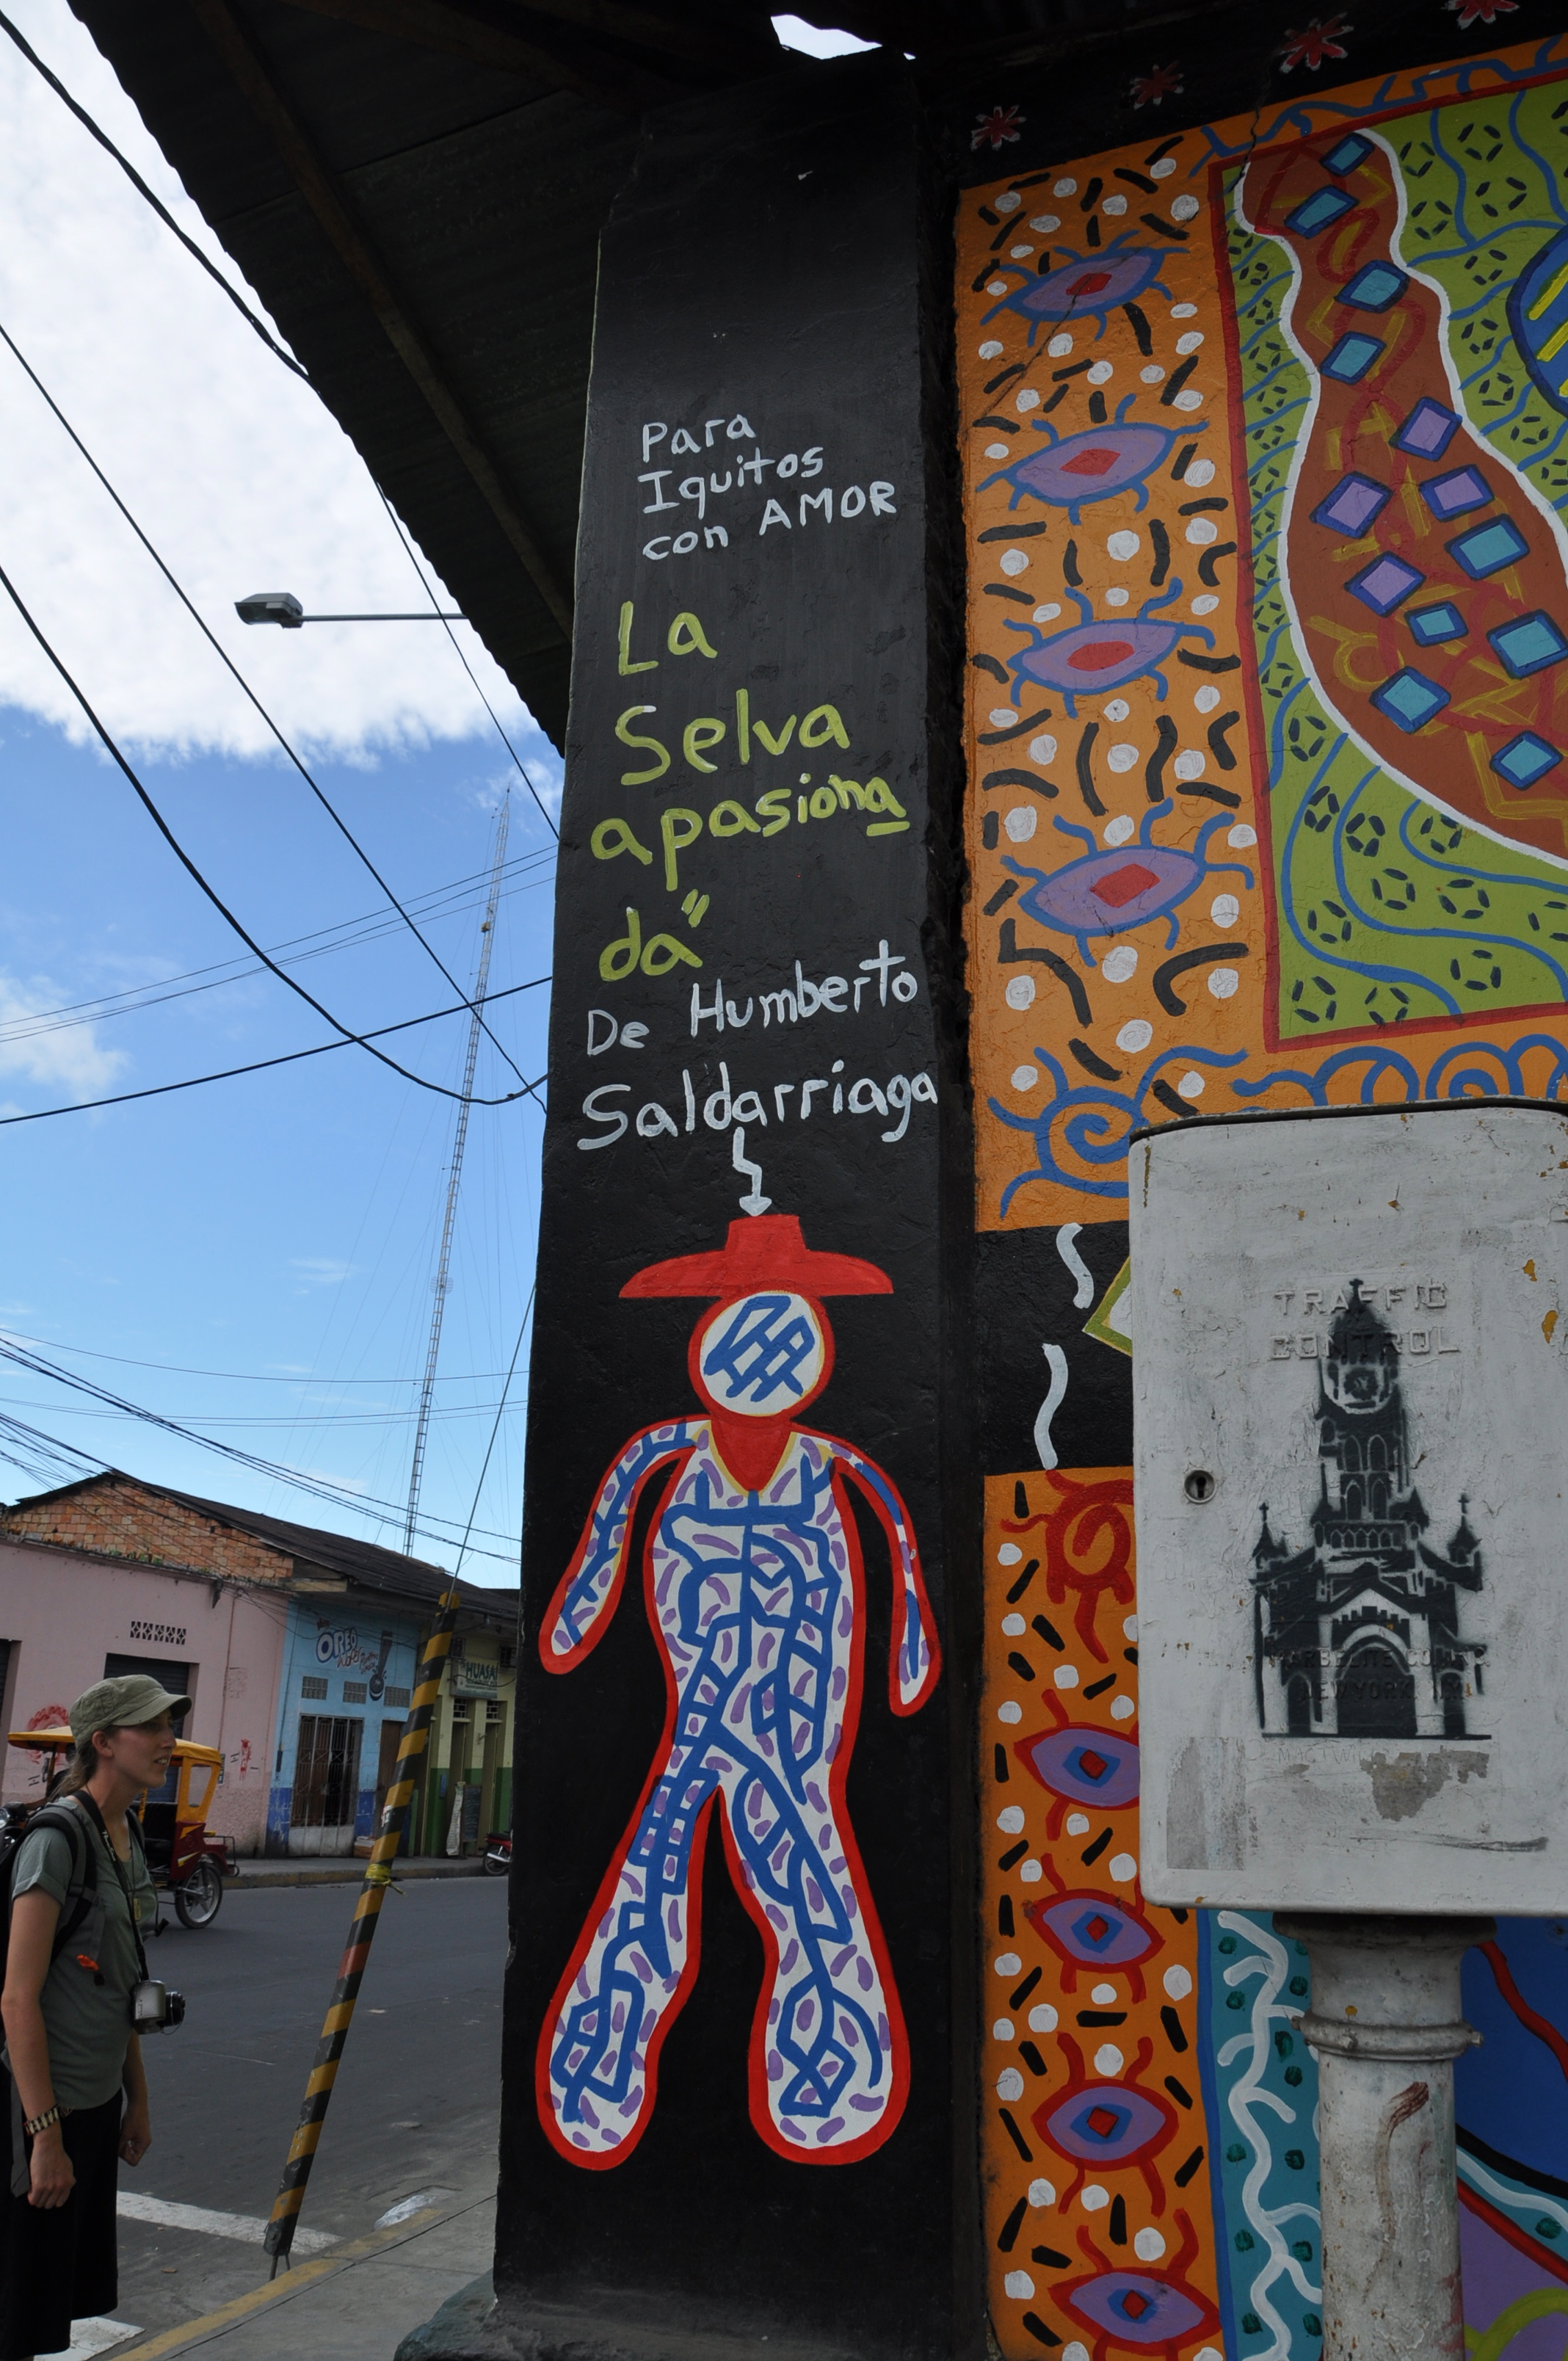 Para
Iquitos
con AMOR
La
Selva
apasiona
da"
De Humberto
Saldarriaga
TRAFFIC
CONTROL
NEW YORK
OREO
HUASAI